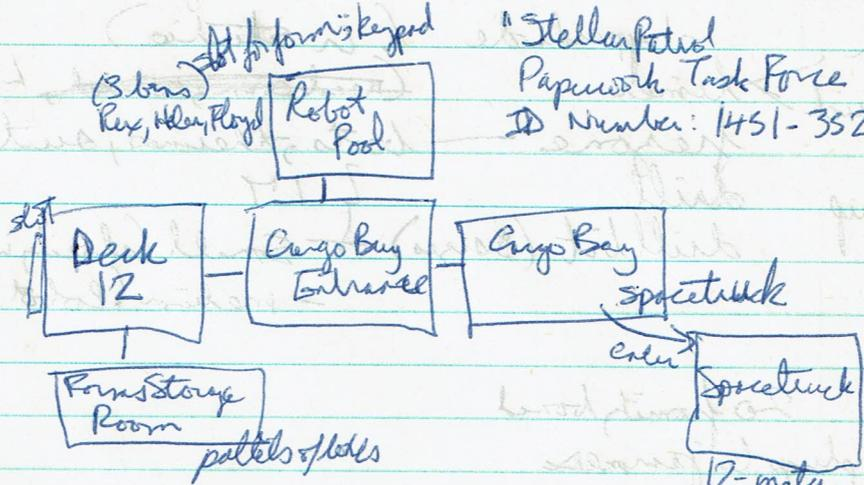 slot for form; keypad
(3 bins)
Rex, Helen, Floyd
Robot
Pool
"Stellar Patrol
Paperwork Task Force
ID Number: 1451-352
slot
Deck
12
Cargo Bay
Entrance
Cargo Bay
spacetruck
enter
Spacetruck
Forms Storage
Room
pallets of boxes